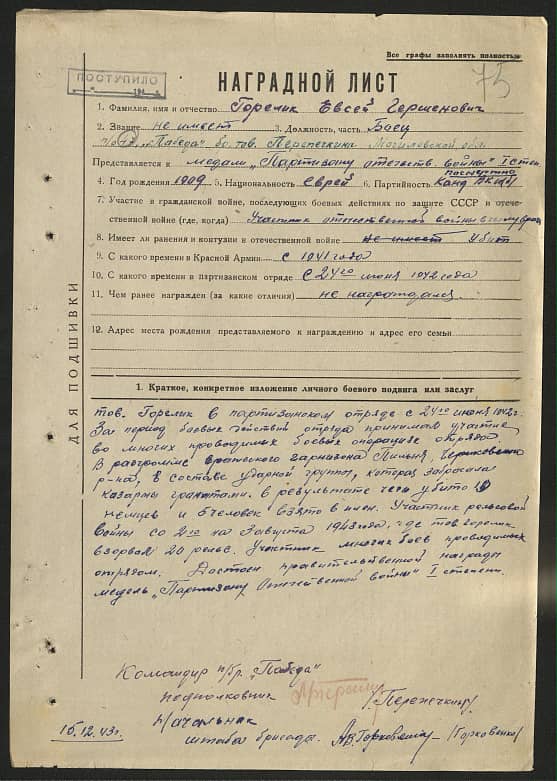 Все графы заполнять полностью
75
ПОСТУПИЛО
НАГРАДНОЙ ЛИСТ
1. Фамилия, имя и отчество Горелик Евсей Гершенович
2. Звание не имеет 3. Должность, часть Боец
"Победа" бр. тов. Перепечкина Могилевской обл.
Представляется к медали "Партизану отечеств. войны" I степ.
посмертно
4. Год рождения 1909 5. Национальность Еврей 6. Партийность Канд ВКП(б)
7. Участие в гражданской войне, последующих боевых действиях по защите СССР и отече-
ственной войне (где, когда) Участник отечественной войны
8. Имеет ли ранения и контузии в отечественной войне не имеет Убит
9. С какого времени в Красной Армии с 1941 года
10. С какого времени в партизанском отряде с 24го июня 1942 года
11. Чем ранее награжден (за какие отличия) не награждался.
12. Адрес места рождения представляемого к награждению и адрес его семьи
ДЛЯ ПОДШИВКИ
1. Краткое, конкретное изложение личного боевого подвига или заслуг
тов. Горелик в партизанском отряде с 24го июня 1942г.
За период боевых действий отряда принимал участие
во многих проводимых боевых операциях отряда.
В разгроме вражеского гарнизона
р-на, в составе ударной группы, которая забросала
казармы гранатами. в результате чего убито
немцев и 5 человек взято в плен. Участник рельсовой
войны со 2го на 3 августа 1943 года, где тов Горелик
взорвал 20 рельс. Участник многих боев проводимых
отрядом. Достоин правительственной награды
медаль "Партизану Отечественной войны" I степени.
Командир п/бр. "Победа"
подполковник /Перепечкин/
Начальник
штаба бригады. АВГорковенко /Горковенко/
16.12.43г.